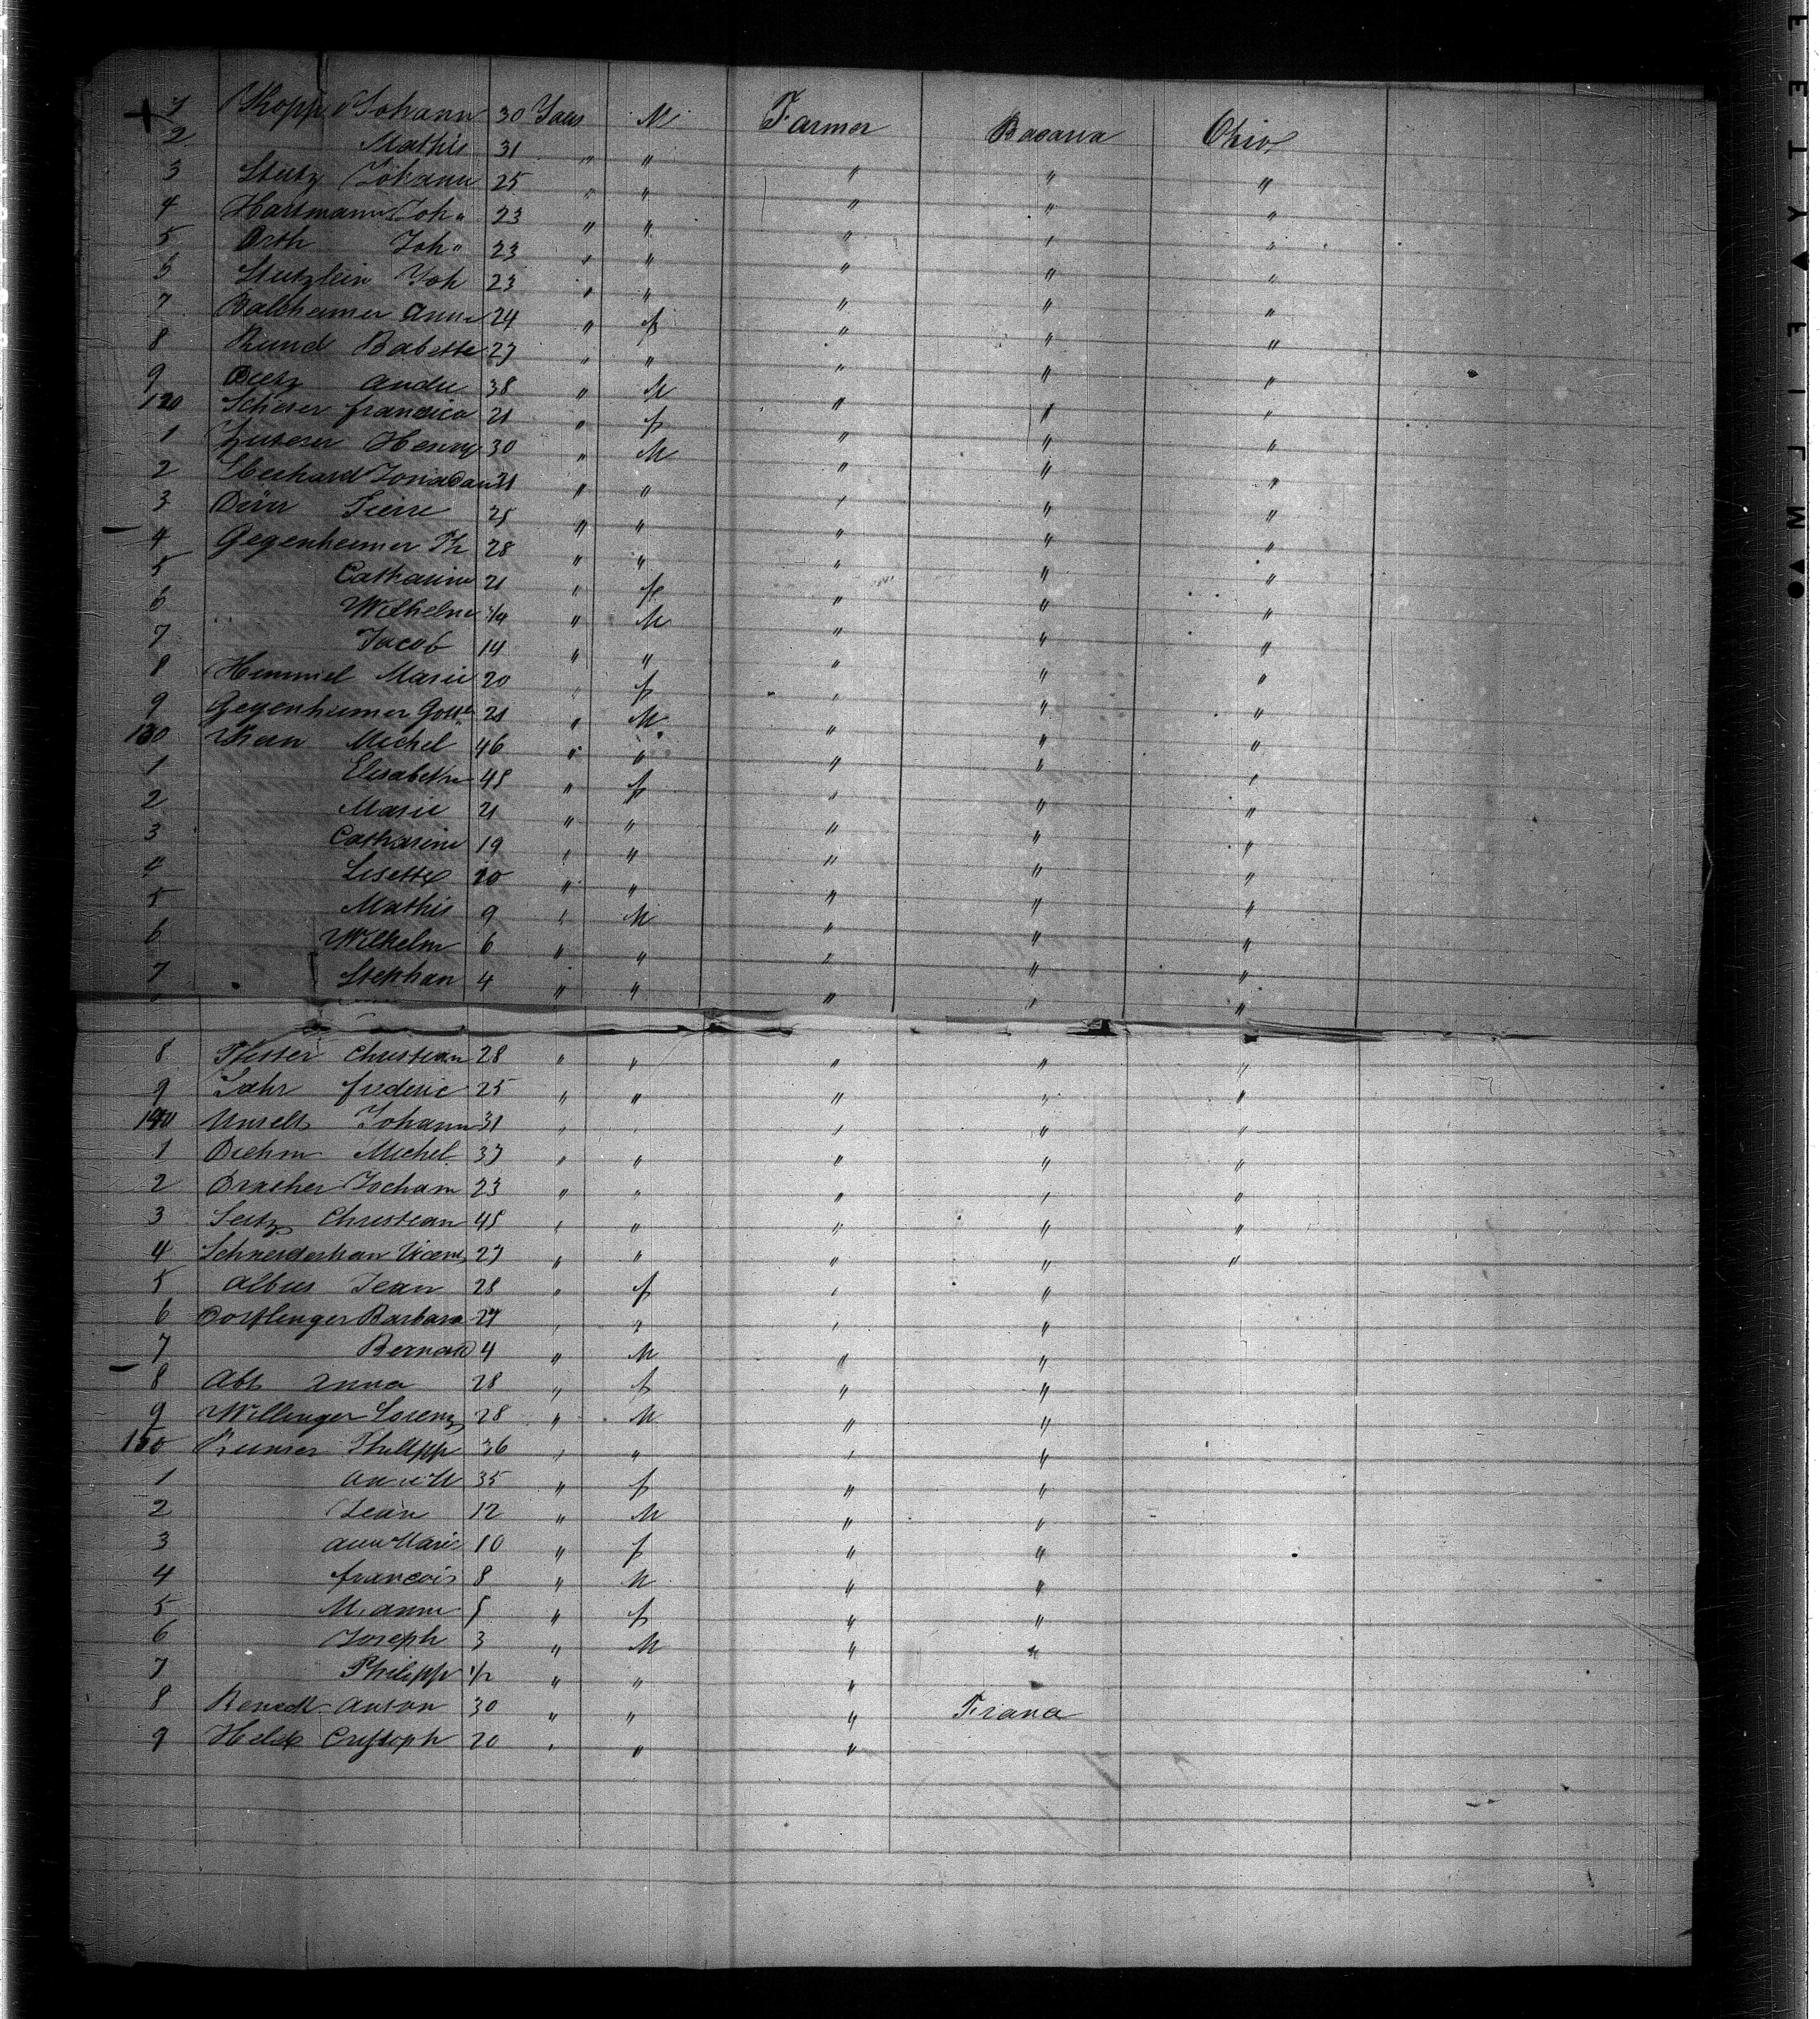 1 Kopp Johann 30 Years M Farmer Bavaria Ohio
2 Mathis 31 " " " " "
3 Stutz Johann 25 " " " " "
4 Hartmann Joh " 23 " " " " "
5 Orth Joh " 23 " " " " "
6 Stutzlein Joh 23 " " " " "
7 Balkheimer Anne 24 " f " " "
8 Kund Babette 27 " " " " "
9 Dietz Andre 38 " M " " "
120 Scherer francisca 21 " f " " "
1 Henry 30 " M " " "
2 Eberhard 21 " " " " "
3 Dürr Pierre 25 " " " " "
4 Gegenheimer Ph 28 " " " " "
5 Catharine 21 " f " " "
6 Wilhelm 3/4 " M " " "
7 Jacob 14 " " " " "
8 Himmel Marie 20 " f " " "
9 Gegenheimer 21 " M " " "
130 Kern Michel 46 " " " " "
1 Elisabeth 45 " f " " "
2 Marie 21 " " " " "
3 Catharine 19 " " " " "
4 Lisette 10 " " " " "
5 Mathis 9 " M " " "
6 Wilhelm 6 " " " " "
7 Stephan 4 " " " " "
8 Pfister Christian 28 " " " " "
9 Jahr frederic 25 " " " " "
140 Unselt Johann 31 " " " " "
1 Diehm Michel 37 " " " " "
2 Dracher Jocham 23 " " " " "
3 Seitz Christian 45 " " " " "
4 Schneiderhan 27 " " " " "
5 Albus Jean 28 " f " "
6 Dorflenger Barbara 27 " " " "
7 Bernard 4 " M " "
8 Abt Anna 28 " f " "
9 Willinger Lorenz 28 " M " "
150 Philipp 36 " " " "
1 35 " f " "
2 Jean 12 " M " "
3 Ann Marie 10 " f " "
4 francois 8 " M " "
5 M. Anne 5 " f " "
6 Joseph 3 " M " "
7 Philipp 1/2 " " "
8 Anton 30 " " "
9 20 " " "